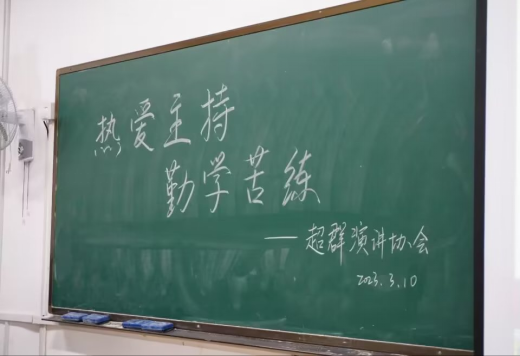 热爱主持
勤学苦练
——超群演讲协会
2023.3.10